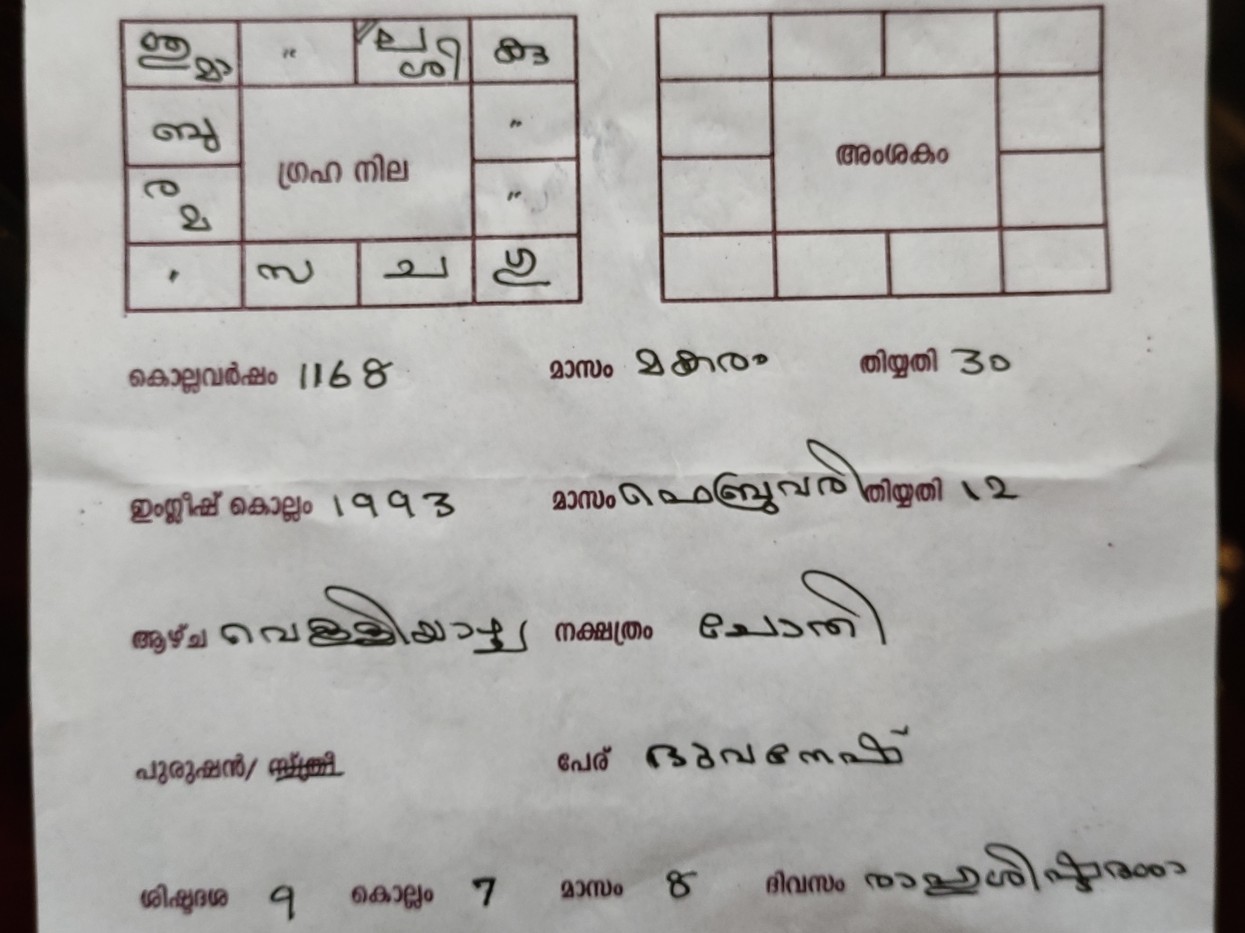 മാ " ല ശി കു
ബു ഗ്രഹ നില " അംശകം
ര മ "
" സ ച ഗു
കൊല്ലവർഷം 1168 മാസം മകരം തിയ്യതി 30
ഇംഗ്ലീഷ് കൊല്ലം 1993 മാസം ഫെബ്രുവരി തിയ്യതി 12
ആഴ്ച വെള്ളിയാഴ്ച നക്ഷത്രം ചോതി
പുരുഷൻ/ സ്ത്രീ പേര് ഭുവനേഷ്
ശിഷ്ടദശ 9 കൊല്ലം 7 മാസം 8 ദിവസം രാഹുശിഷ്ടം